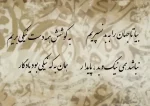 بیا تا جهان را به بد نسپریم
به کوشش همه دست نیکی بریم
نباشد همی نیک و بد پایدار
همان به که نیکی بود یادگار